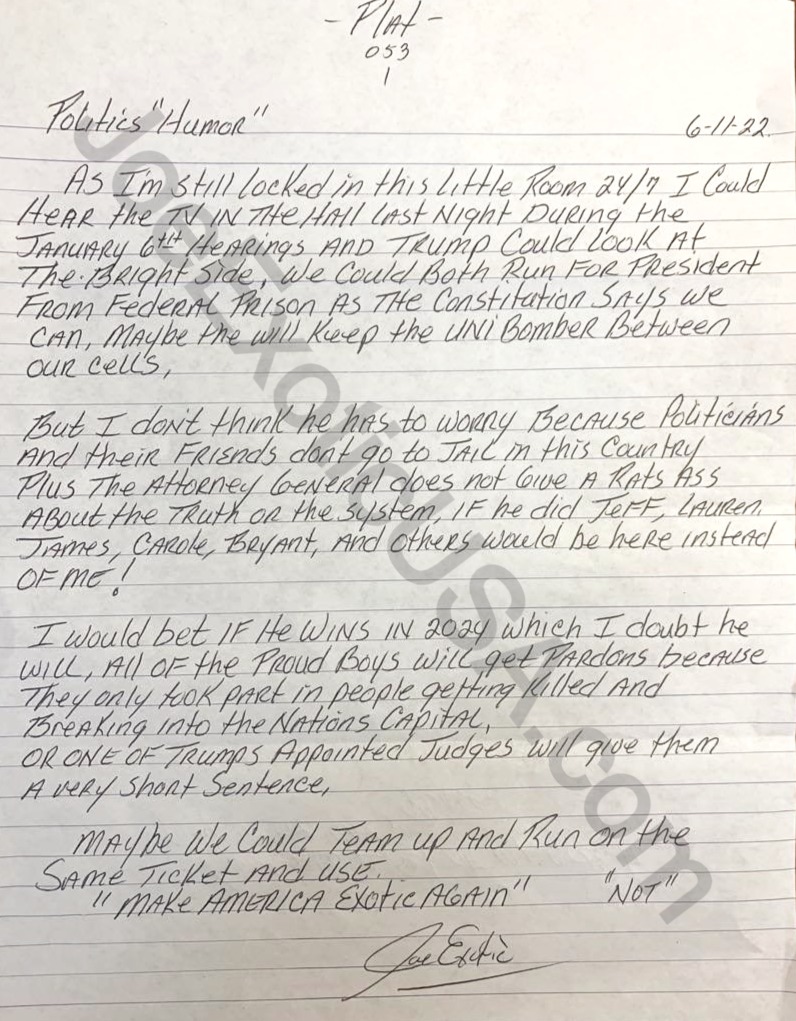 - Plat -
053
1
Politics "Humor"
6-11-22
As I'm still locked in this little Room 24/7 I Could
Hear the TV in the Hall last Night During the
January 6th Hearings and Trump Could look at
The Bright Side, We Could Both Run For President
From Federal Prison as the Constitution Says we
can, Maybe the will Keep the Uni Bomber Between
our cells,
But I don't think he has to worry Because Politicians
And their Friends dont go to Jail in this Country
Plus The Attorney General does not Give A Rats Ass
About the Truth or the system, IF he did Jeff, Lauren,
James, Carole, Bryant, And others would be here instead
of me!
I would bet IF He wins in 2024 which I doubt he
will, All of the Proud Boys will get Pardons because
They only took part in people getting Killed And
Breaking into the Nations Capital,
Or one of Trumps Appointed Judges will give them
A very Short Sentence,
Maybe We Could Team up And Run on the
Same Ticket And use.
"Make America Exotic Again" "Not"
Joe Exotic
JoeExoticUSA.com